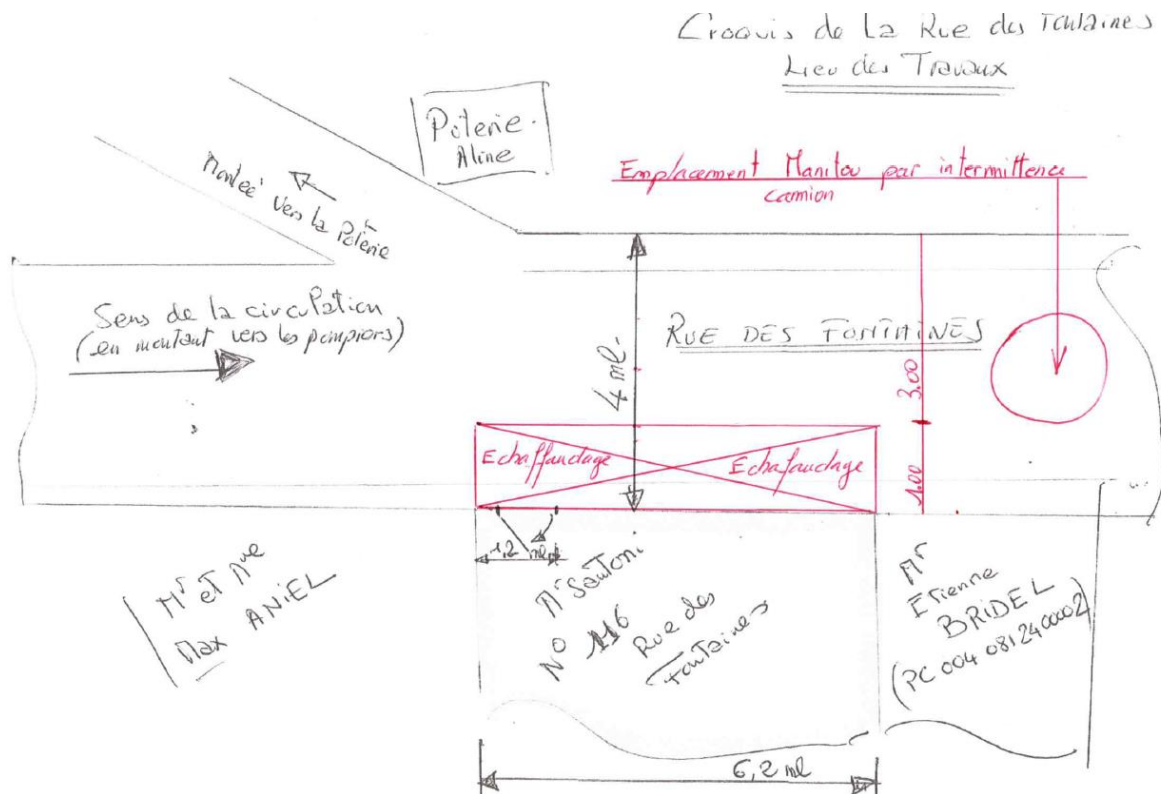 Croquis de La Rue des Fontaines
Lieu des Travaux
Poterie.
Aline
Emplacement Manitou par intermittence
camion
Montée vers la Poterie
Sens de la circulation
(en montant vers les pompiers)
RUE DES FONTAINES
4 ml.
3.00
1.00
Echaffaudage
Echafaudage
1,2 ml
Mr et Mme
Max ANIEL
Mr Santoni
No 116
Rue des
Fontaines
Mr
Etienne
BRIDEL
(PC 004 081 24 00002)
6,2 ml